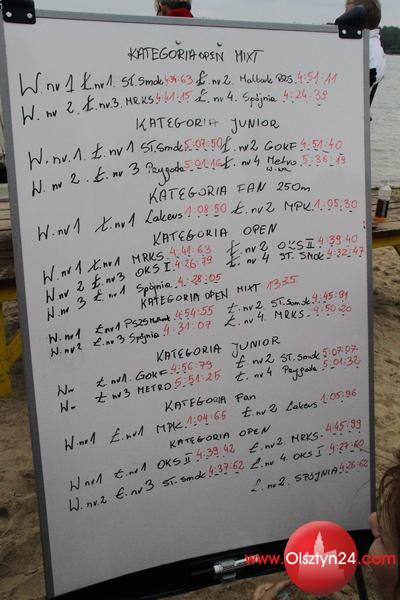 KATEGORIA OPEN MIXT
W. nr 1 Ł. nr 1. ST. Smok 4:34:63 Ł. nr 2. Malbork P2S 4:51:11
W. nr 2. Ł. nr 3. MRKS 4:41:15 Ł nr 4. Spójnia 4:24:39
KATEGORIA JUNIOR
W. nr. 1. Ł. nr 1 ST. Smok 5:07:50 Ł. nr 2 GOKF 4:51:40
W. nr 2. Ł. nr 3 Pzygoda 5:01:16 Ł. nr 4 Metro W-wa 5:36:19
KATEGORIA FAN 250m
W. nr 1 Ł. nr 1 Lakers 1:08:50 Ł. nr 2 MPK 1:05:30
KATEGORIA OPEN
W. nr 1 Ł. nr 1 MRKS 4:41:63 Ł. nr 2 OKS II 4:39:40
W. nr 2 Ł. nr 3 OKS I 4:26:79 Ł. nr 4 ST. SMOK 4:32:47
W. nr 3 Ł. nr 1 Spójnia 4:28:05
KATEGORIA OPEN MIXT 1335
W. nr 1 Ł. nr 1 PSZS Malbork 4:54:55 Ł. nr 2. ST. Smok 4:45:91
W. nr 2 Ł. nr 3 Spójnia 4:31:07 Ł. nr 4. MRKS 4:50:20
KATEGORIA JUNIOR
W- Ł. nr 1. GOKF 4:56:79 Ł. nr 2 ST. Smok 5:07:07
W- Ł nr 3 METRO 5:51:25 Ł. nr 4 Pzygoda 5:01:32
KATEGORIA Fan
W. nr 1 Ł. nr 1 MPK 1:04:65 Ł. nr 2 Lakers 1:05:96
KATEGORIA OPEN
W. nr 1 Ł. nr 1 OKS II 4:39:42 Ł. nr 2. MRKS 4:45:99
W. nr. 2 Ł. nr 3 ST. Smok 4:37:62 Ł. nr 4. OKS I 4:27:60
Ł. nr 2. SPÓJNIA 4:26:62
www.Olsztyn24.com